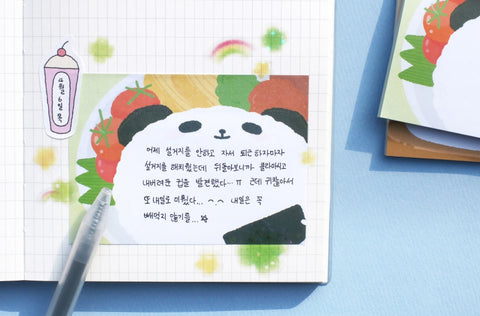 4월
6일
목
어제 설거지를 안하고 자서 퇴근하자마자
설거지를 해치웠는데 뒤돌아보니까 콜라마시고
내버려둔 컵을 발견했다...ㅠ 근데 귀찮아서
또 내일로 미뤘다... ⌒⌒ 내일은 꼭
빼먹지 않기를...